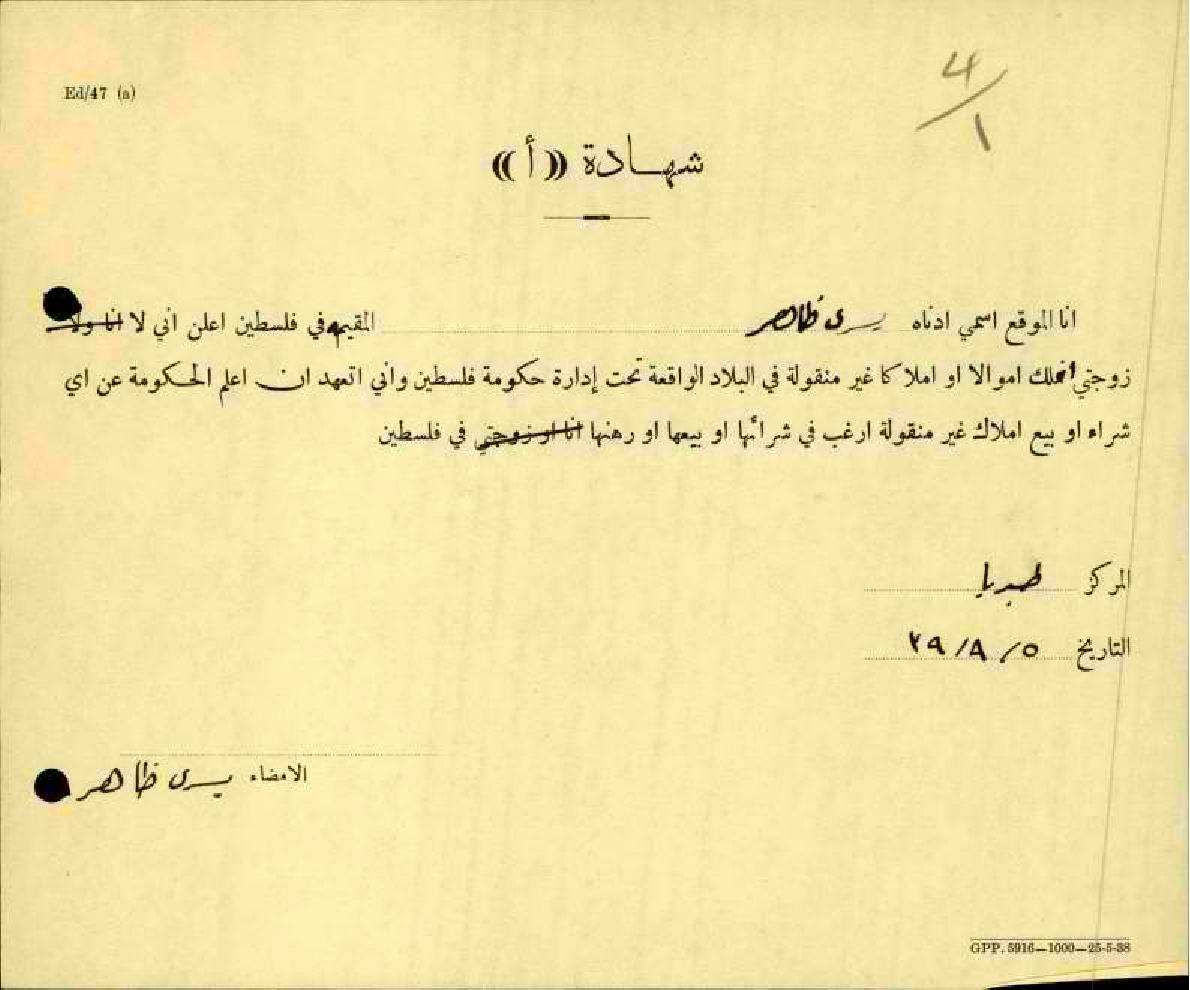 Ed/47 (a)
4/1
شهادة ((أ))
انا الموقع اسمي ادناه يسرى ظاهر المقيمه في فلسطين اعلن اني لا انا ولا
زوجتي املك اموالا او املاكا غير منقولة في البلاد الواقعة تحت إدارة حكومة فلسطين واني اتعهد ان اعلم الحكومة عن اي
شراء او بيع املاك غير منقولة ارغب في شرائها او بيعها او رهنها انا او زوجتي في فلسطين
المركز طبريا
التاريخ ٥/٩/٣٩
الامضاء يسرى ظاهر
GPP. 5916—1000—25-5-38